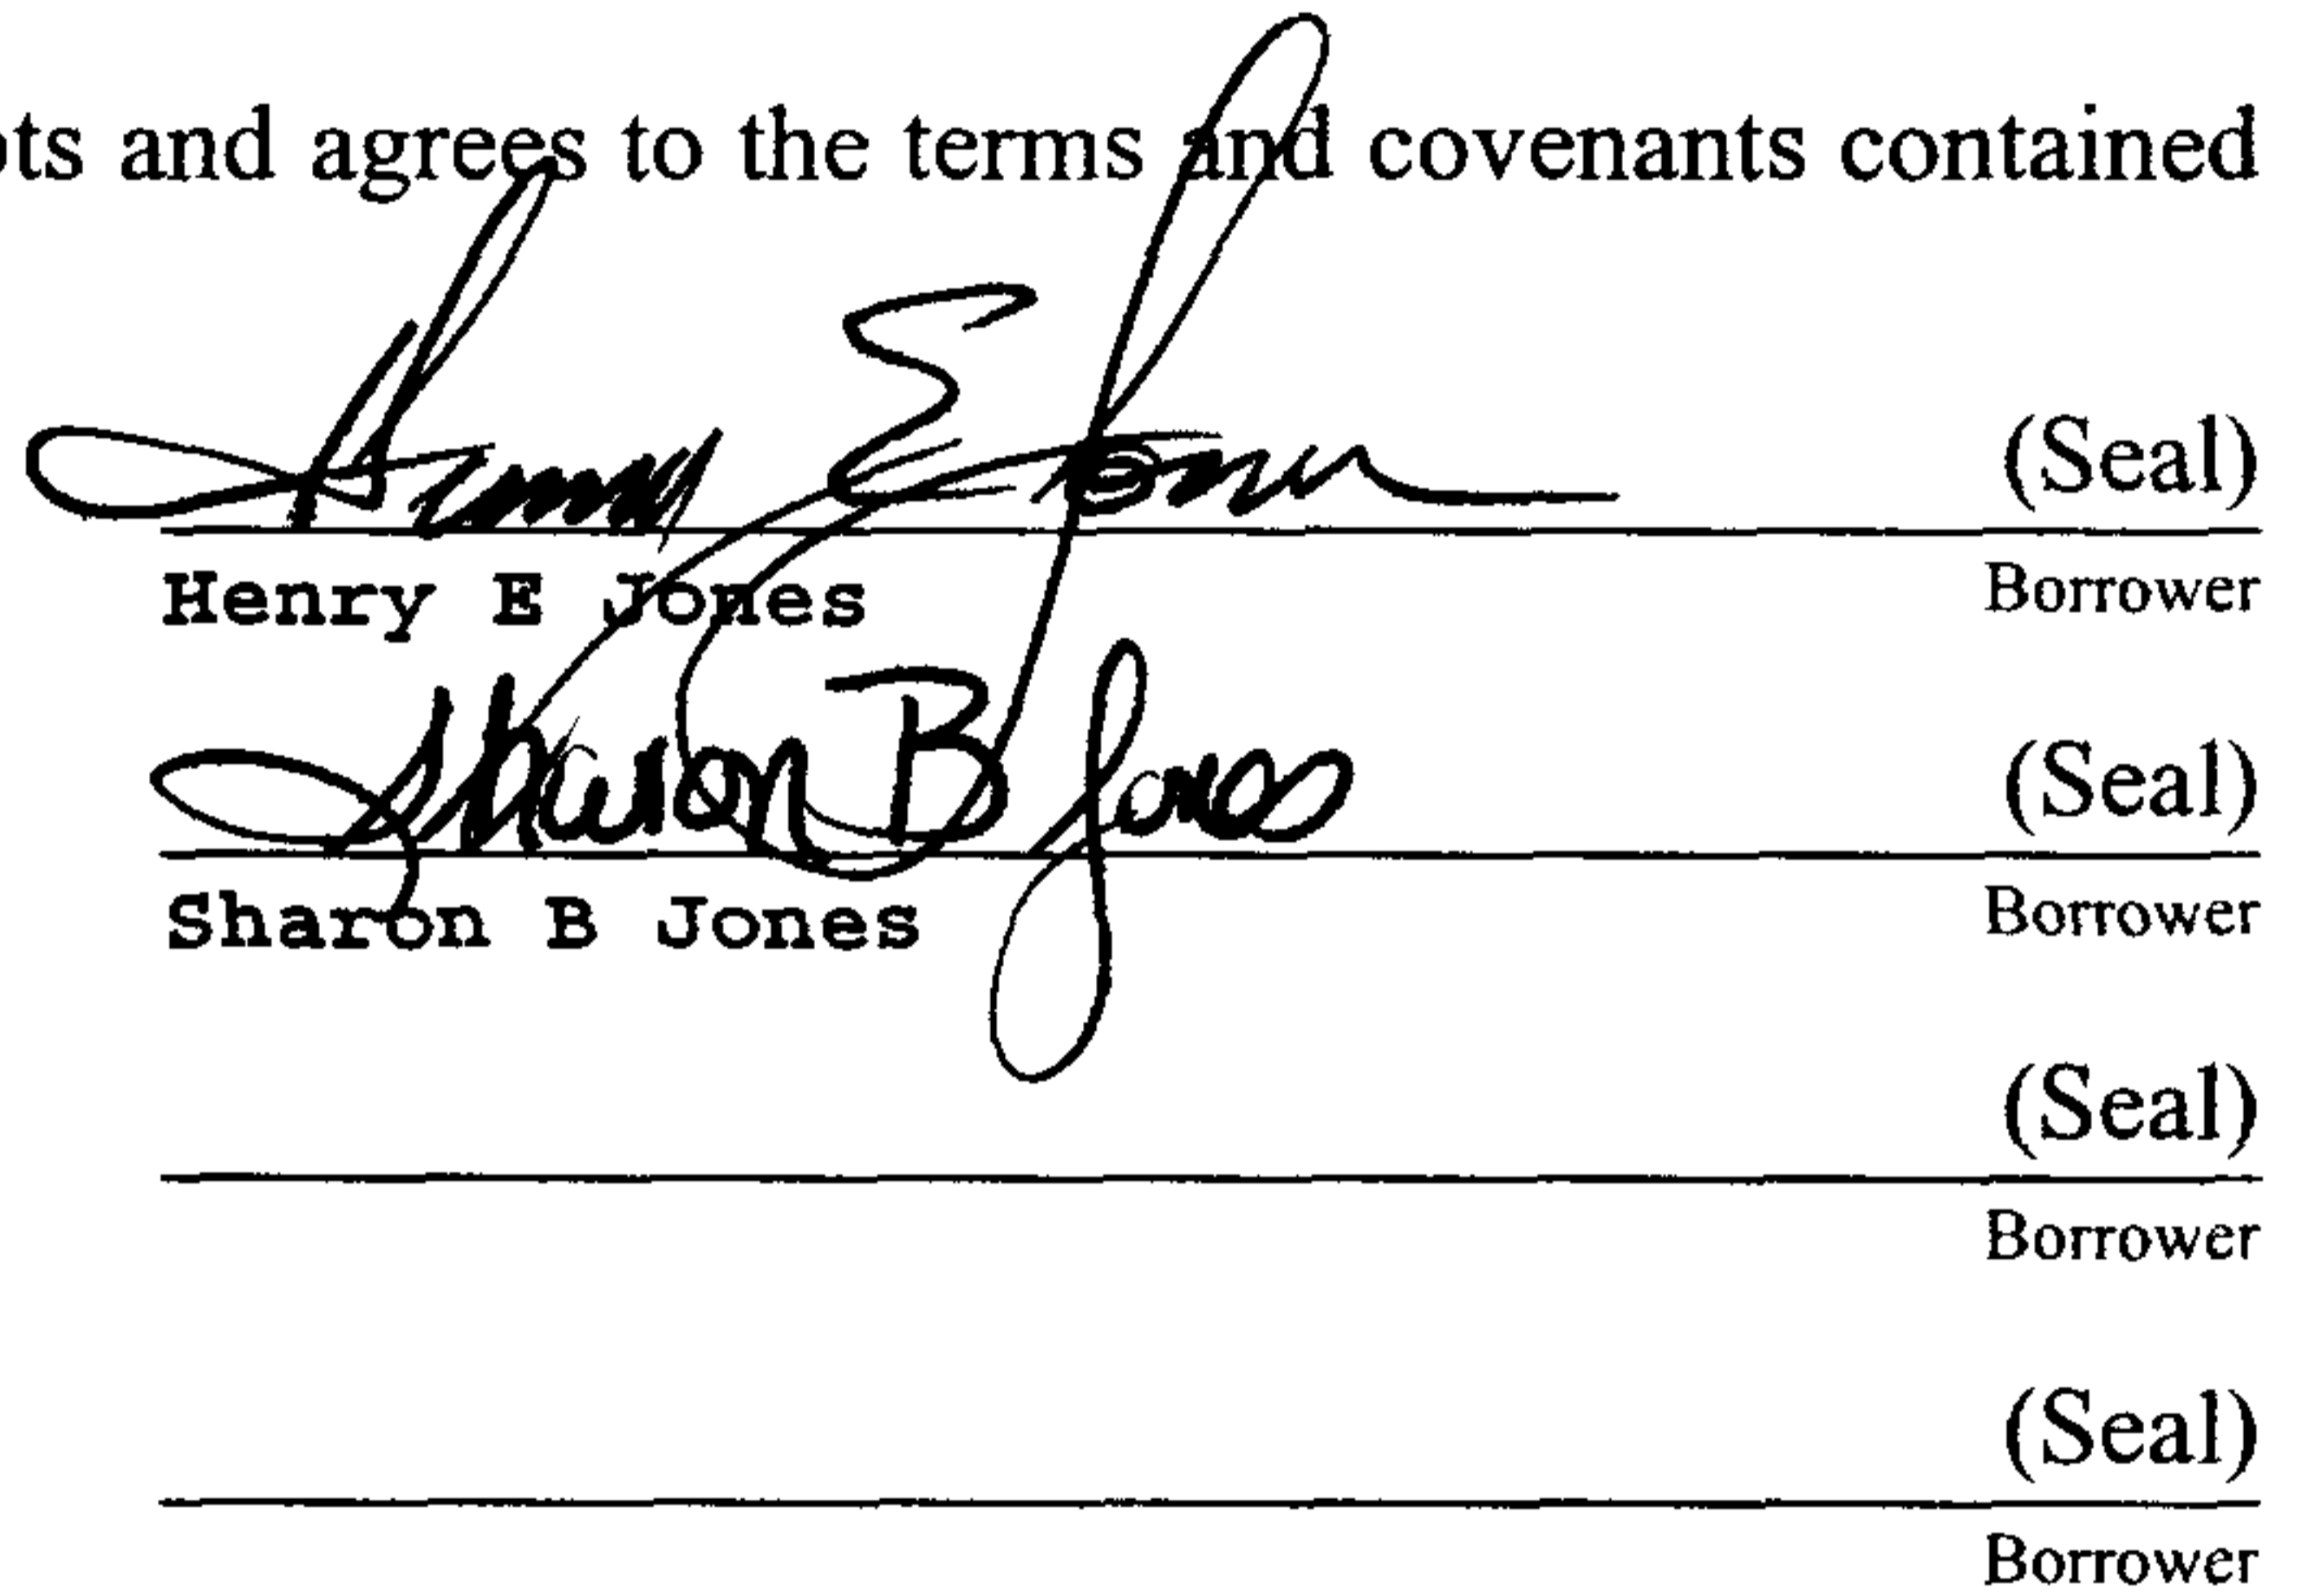 ots and agrees to the terms and covenants contained
Henry E Jones (Seal)
Henry E Jones Borrower
Sharon B Jones (Seal)
Sharon B Jones Borrower
(Seal)
Borrower
(Seal)
Borrower